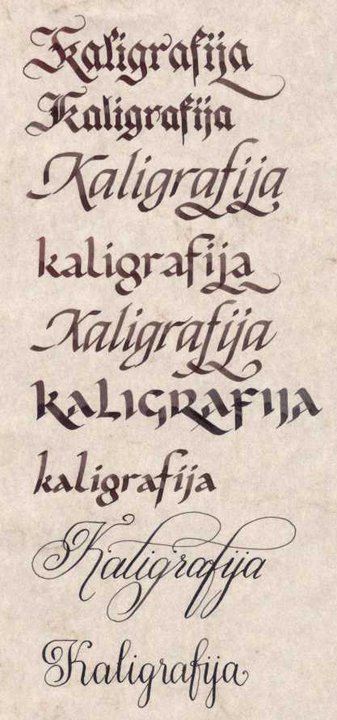 Kaligrafija
Kaligrafija
Kaligrafija
kaligrafija
Kaligrafija
kaLIGRAFIJA
kaligrafija
Kaligrafija
Kaligrafija